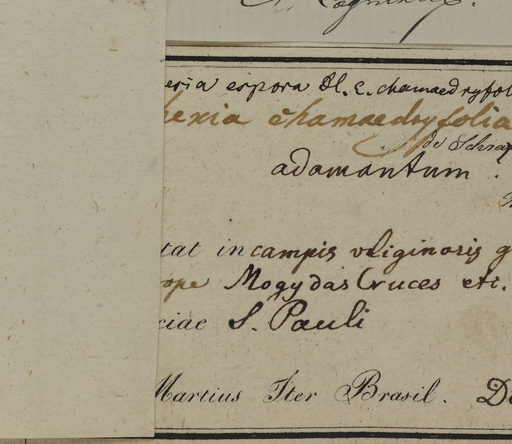 eria espora St. e. chamaedryfol
hexia chamaedryfolia
de Schra
adamantum.
tat in campis uliginosis g
ope Mogy das Cruces etc.
ciae S. Pauli
Martius Iter Brasil. De